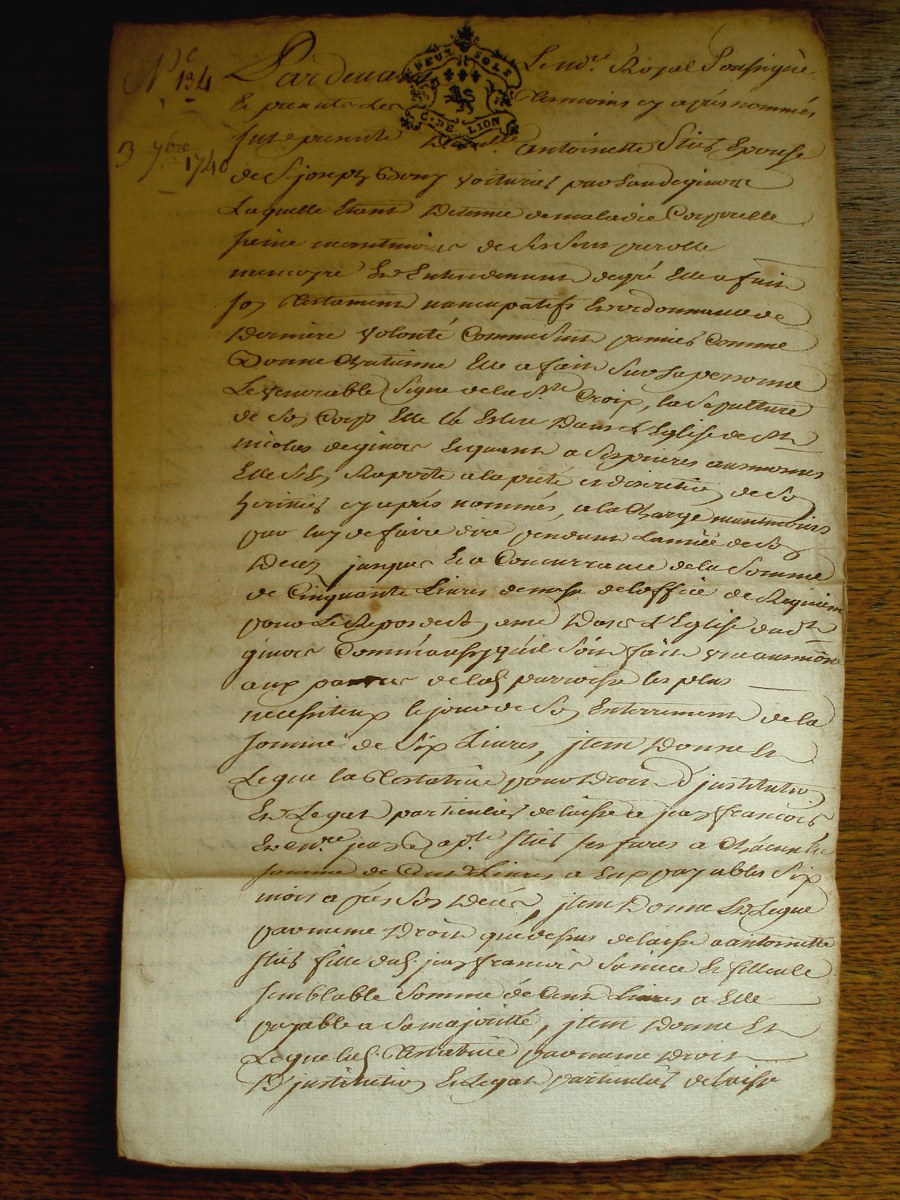 N° 134
3 7bre 1740
DEUX SOLS
G. DE LION
Pardevant Le no.re Royal Soussigné
Et presents Les tesmoins cy après nommés
fut presente D.elle antoinette Epouse
de S.r joseph voiturier par Eau de givors
Laquelle Etant Detenue de maladie Corporelle
saine neantmoins de ses sens parolle
memoyre Et Entendement de gré Elle a fait
son testament nuncupatifs Et ordonnance de
Derniere volonté Comme s'ensuit Comme
bonne Chretienne Elle a fait sur sa personne
Le venerable signe de la S.te Croix, la sepulture
de son Corps Elle Eslu Dans L'Eglise de St
nicolas de givors Et quant a ses prières aumones
Elle s'en raporte a la pieté et discretion de son
heritier cy après nommés, a la Charge neantmoins
par luy de faire dire pendant L'année de son
Deces jusques a Concurrance de la somme
de Cinquante Livres de messe de L'office de Requiem
pour Le Repos de son ame Dans L'Eglise dud.t
givors Comm'aussy qu'il soit fait une aumone
aux pauvres de lad. parroisse les plus
necessiteux le jour de son Enterrement de la
somme de six Livres, jtem Donne Et
Legue la testatrice pour Droit D'jnstitution
Et Legat particulier delaisse a jean françois
Et jean bap.te ses freres a Chacun la
somme de Cent Livres a Eux payables six
mois après son Decès, jtem Donne Et Legue
par meme Droit que dessus delaisse a antoinette
fille dud. jean françois sa niece Et fillieule
semblable somme de Cent Livres a Elle
payable a sa majorité, jtem Donne Et
Legue lad. testatrice par meme Droit
D'jnstitution Et Legat particulier delaisse